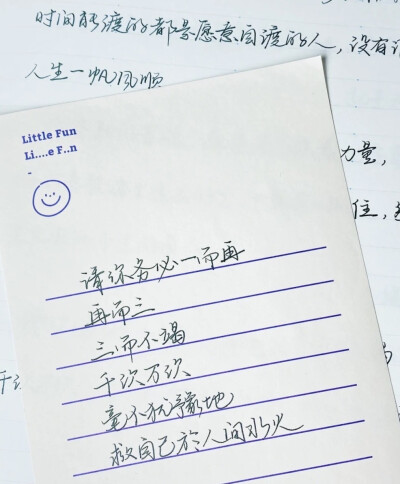 时间能渡的都是愿意自渡的人，没有
人生一帆风顺
力量，
住，
Little Fun
Li....e F..n
-
请你务必一而再
再而三
三而不竭
千次万次
毫不犹豫地
救自己於人间水火